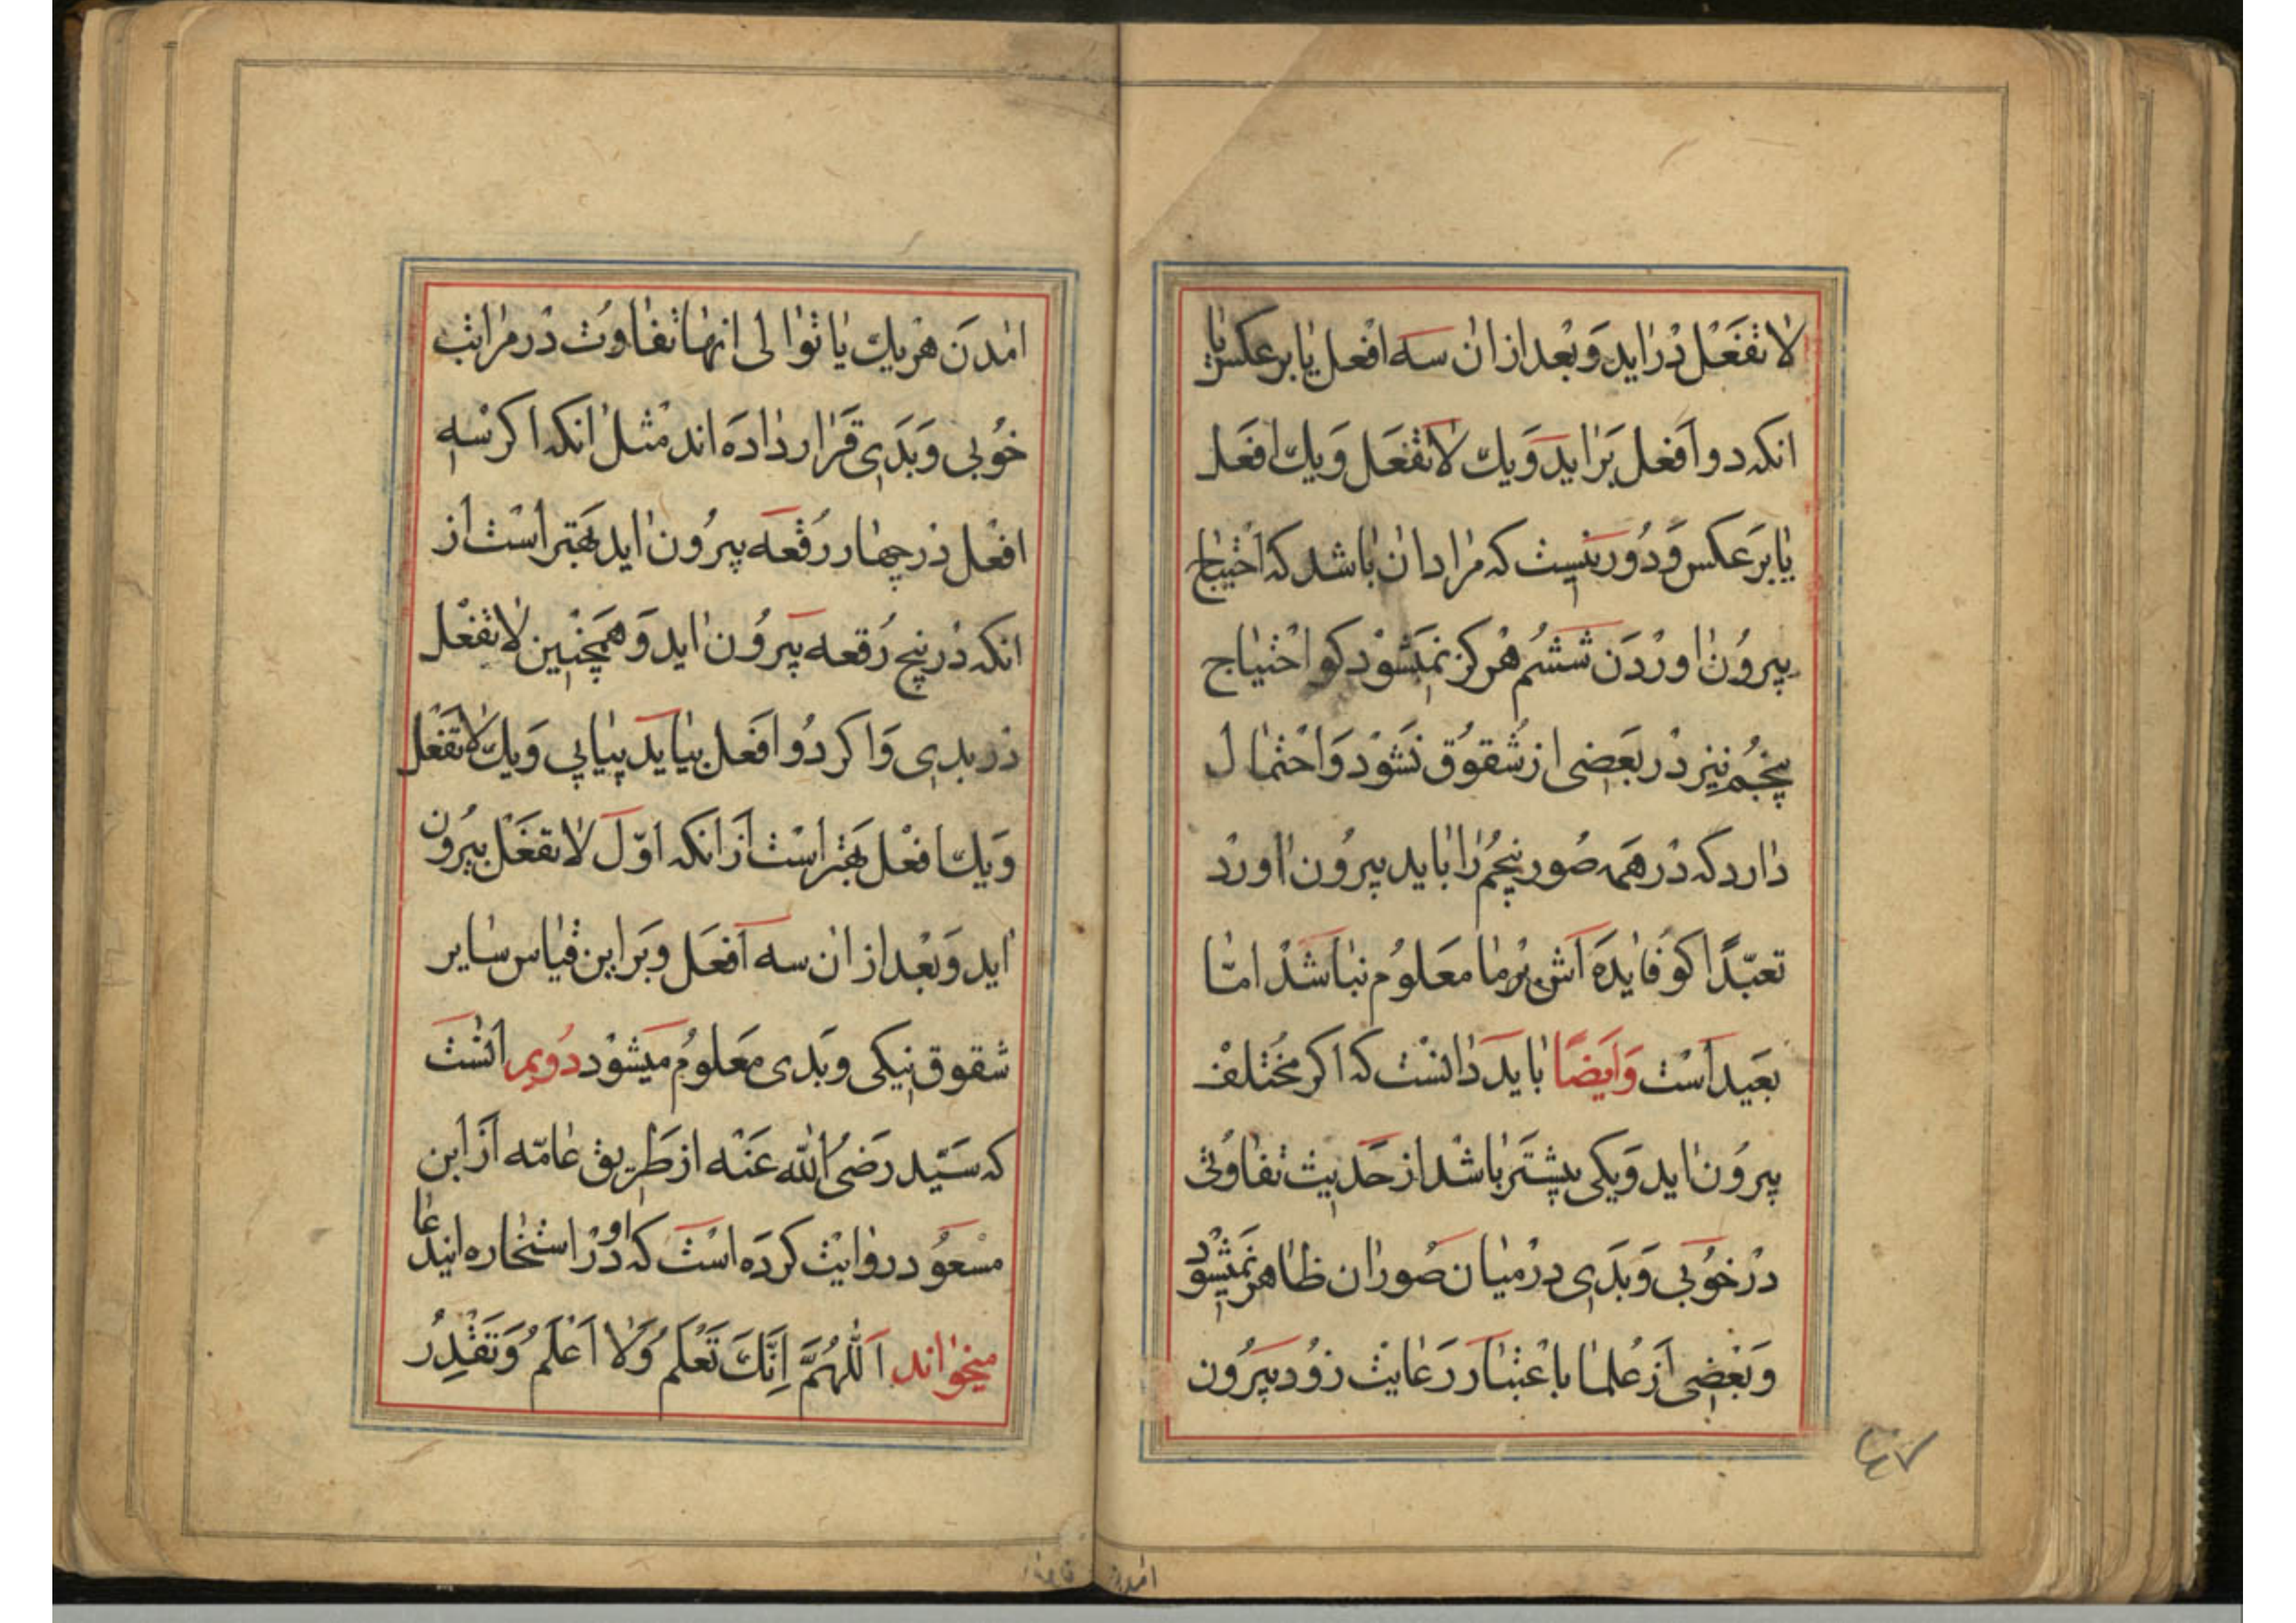 لا تفعل در اید و بعد از ان سه افعل یا بر عکس یا
انکه دو افعل بر اید و یك لا تفعل و یك افعل
یا بر عکس و دور نیست که مراد ان باشد که احتیاج
بیرون اوردن ششم هرکز نمیشود کو احتیاج
پنجم نیز در بعضی از شقوق نشود و احتمال
دارد که در همه صور پنجم را باید بیرون اورد
تعبّدًا کو فایده اش بر ما معلوم نباشد امّا
بعید است وَایضًا باید دانست که اکر مختلف
بیرون اید و یکی بیشتر باشد از حدیث تفاوتی
در خوبی و بدی در میان صور ان ظاهر نمیشود
و بعضی از علما باعتبار رعایت زود بیرون
امدن هر یك یا توالی انها تفاوت در مراتب
خوبی و بدی قرار داده اند مثل انکه اکر سه
افعل در چهار رقعه بیرون اید بهتر است از
انکه در پنج رقعه بیرون اید و همچنین لا تفعل
در بدی و اکر دو افعل بیاید پیاپی و یك لا تفعل
و یك افعل بهتر است از انکه اوّل لا تفعل بیرون
اید و بعد از ان سه افعل و بر این قیاس سایر
شقوق نیکی و بدی معلوم میشود دویم انست
که سیّد رضی الله عنه از طریق عامّه از ابن
مسعود روایت کرده است که او در استخاره ایندعا
میخواند اَللّٰهُمَّ اِنَّكَ تَعْلَمُ وَلا اَعْلَمُ وَتَقْدِرُ
۴۷
امدن